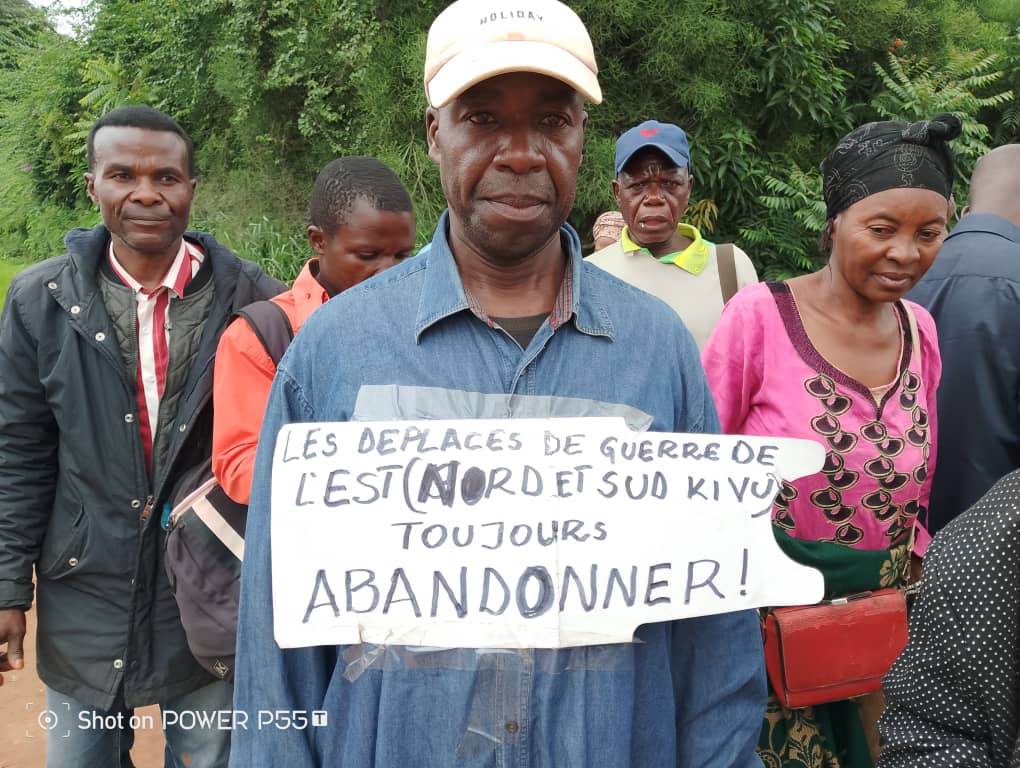 HOLIDAY
LES DEPLACES DE GUERRE DE
L'EST (NORD ET SUD KIVU)
TOUJOURS
ABANDONNER!
Shot on POWER P55 T